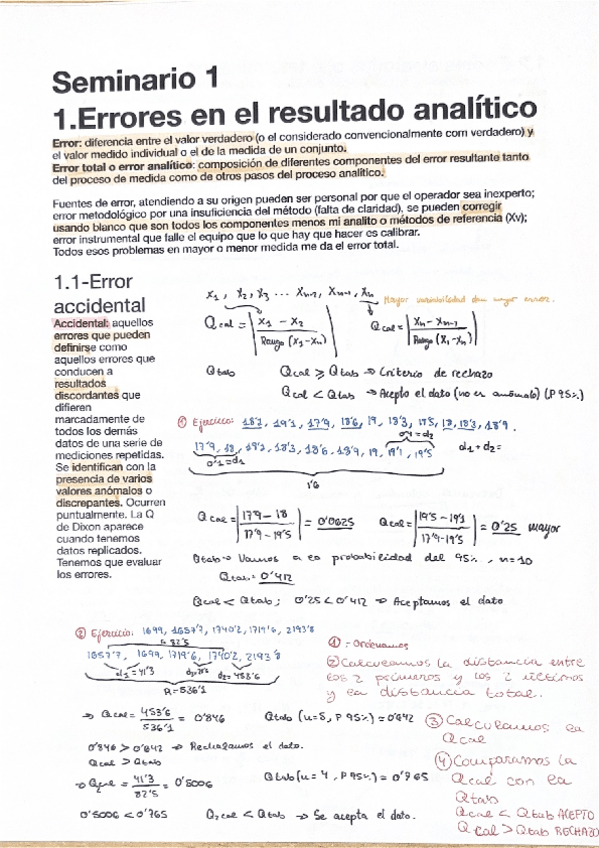 Seminario 1
1.Errores en el resultado analítico
Error: diferencia entre el valor verdadero (o el considerado convencionalmente com verdadero) y
el valor medido individual o el de la medida de un conjunto.
Error total o error analítico: composición de diferentes componentes del error resultante tanto
del proceso de medida como de otros pasos del proceso analítico.
Fuentes de error, atendiendo a su origen pueden ser personal por que el operador sea inexperto;
error metodológico por una insuficiencia del método (falta de claridad), se pueden corregir
usando blanco que son todos los componentes menos mi analito o métodos de referencia (Xv);
error instrumental que falle el equipo que lo que hay que hacer es calibrar.
Todos esos problemas en mayor o menor medida me da el error total.
1.1-Error
accidental
Accidental: aquellos
errores que pueden
definirse como
aquellos errores que
conducen a
resultados
discordantes que
difieren
marcadamente de
todos los demás
datos de una serie de
mediciones repetidas.
Se identifican con la
presencia de varios
valores anómalos o
discrepantes. Ocurren
puntualmente. La Q
de Dixon aparece
cuando tenemos
datos replicados.
Tenemos que evaluar
los errores.
x1, x2, x3 ... Xn-2, Xn-1, Xn
Mayor variabilidad dan mayor error.
Qcal = |x1 - x2 / Rango (x1-xn)|
Qcal = |Xn - Xn-1 / Rango (X1-Xn)|
Qtab
Qcal ≥ Qtab → Criterio de rechazo
Qcal < Qtab → Acepto el dato (no es anómalo) (P 95%)
① Ejercicio: 18'2, 19'1, 17'9, 18'6, 19, 18'3, 19'5, 18, 18'3, 18'9.
17'9, 18, 18'2, 18'3, 18'6, 18'9, 19, 19'1, 19'5
0'4=d2
d1+d2=
0'1=d1
1'6
Qcal = |17'9-18 / 17'9-19'5| = 0'0625
Qcal = |19'5-19'1 / 17'9-19'5| = 0'25 mayor
Qtab → Vamos a la probabilidad del 95%, n=10
Qtab = 0'412
Qcal < Qtab; 0'25 < 0'412 → Aceptamos el dato
② Ejercicio: 1699, 1657'7, 1740'2, 1719'6, 2193'8
82'5
1657'7, 1699, 1719'6, 1740'2, 2193'8
d1=41'3
d2=453'6
R=536'1
① = Ordenamos
② Calculamos la distancia entre
los 2 primeros y los 2 últimos
y la distancia total.
→ Qcal = 453'6 / 536'1 = 0'846
Qtab (n=5, P 95%) = 0'842
③ Calculamos la
Qcal
0'846 > 0'842 → Rechazamos el dato.
Qcal > Qtab
④ Comparamos la
Qcal con la
Qtab
→ Qcal = 41'3 / 82'5 = 0'5006
Qtab (n=4, P 95%) = 0'765
0'5006 < 0'765
Qcal < Qtab → Se acepta el dato.
Qcal < Qtab ACEPTO
Qcal > Qtab RECHAZO